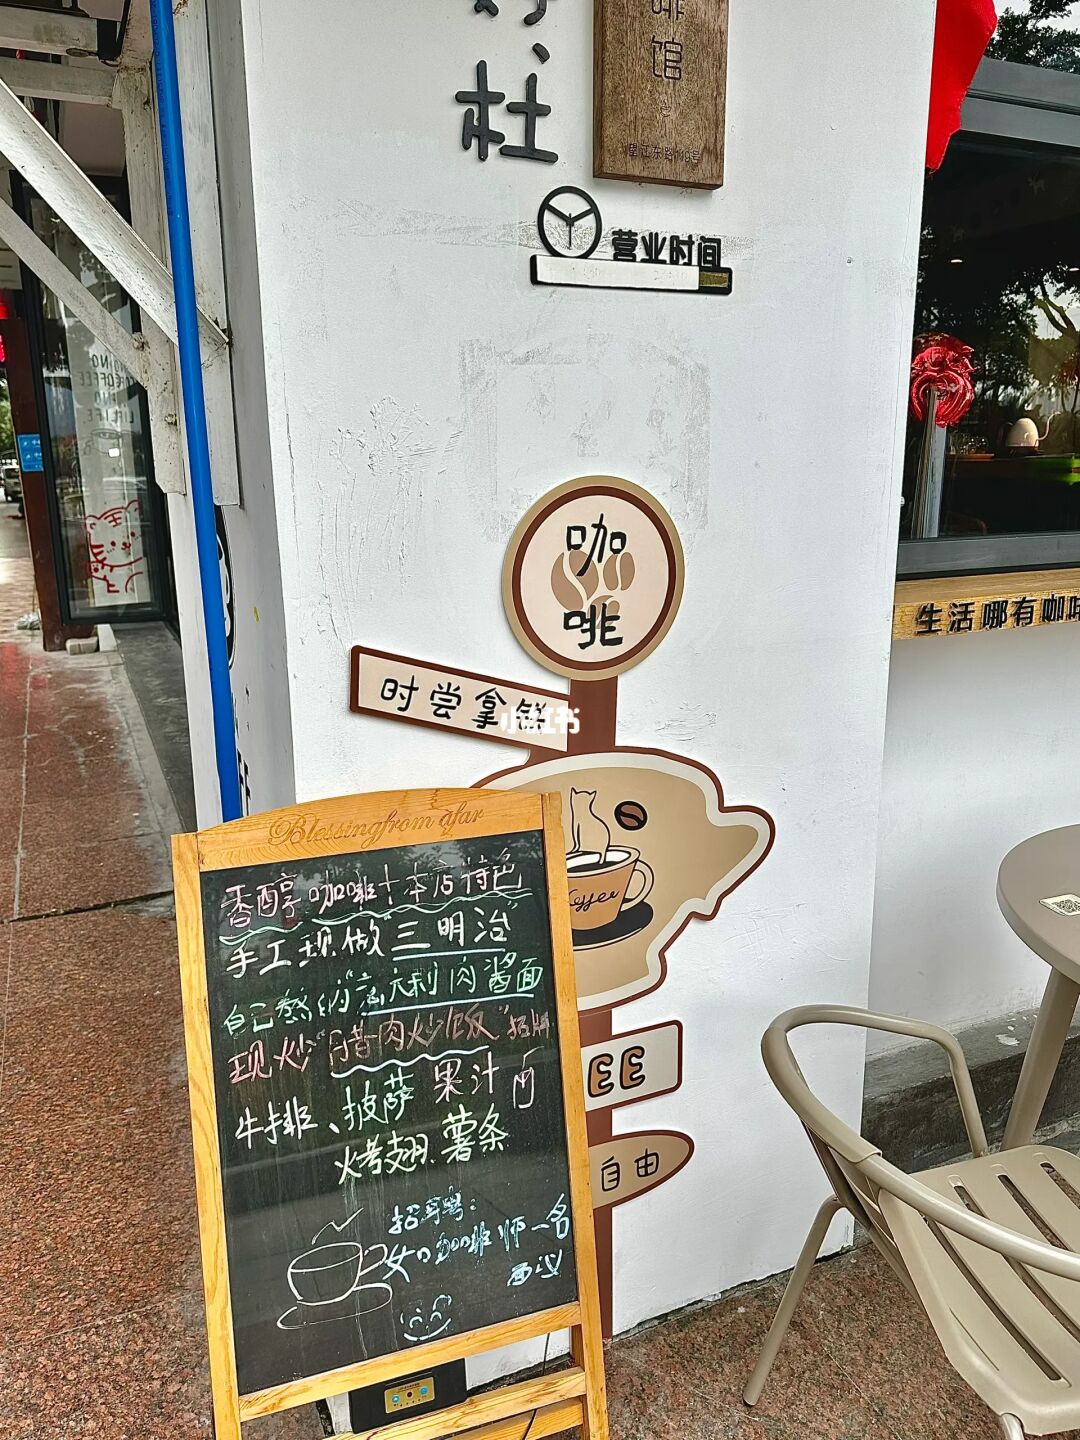 杜
啡
馆
望江东路118号
营业时间
咖
啡
时尝拿铁
小红书
生活哪有咖啡
Coffee
EE
自由
Blessingfrom afar
香醇咖啡+本店特色
手工现做"三明治"
自己熬的"意大利肉酱面
现炒"腊肉炒饭"招牌
牛排、披萨 果汁
烤翅、薯条
招聘:
女咖啡师一名
面议